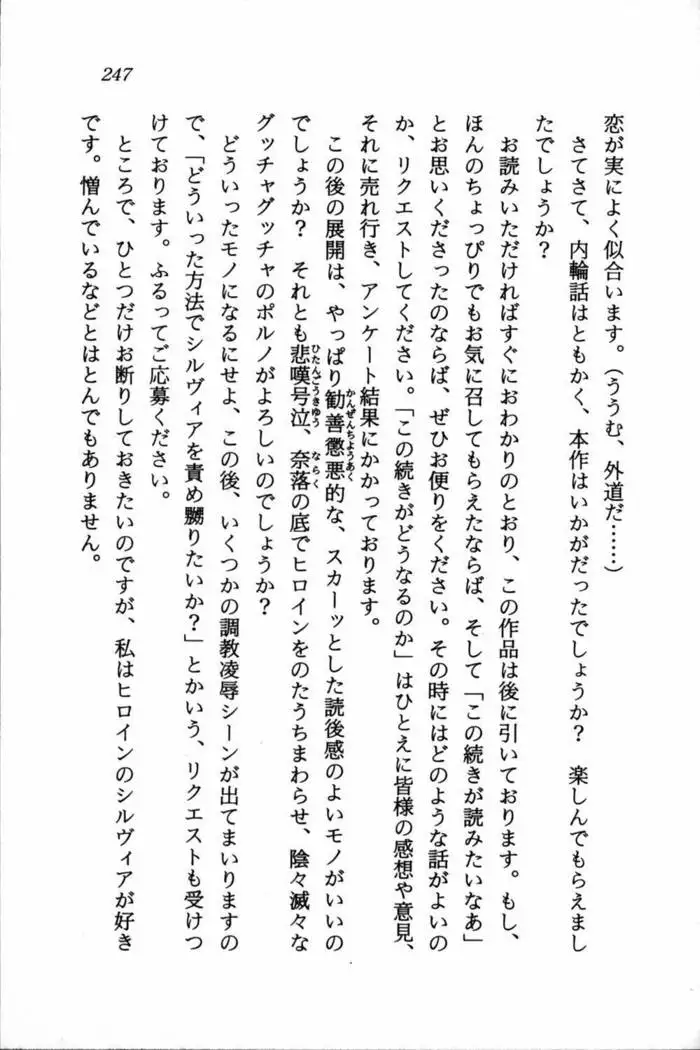 247
恋が実によく似合います。（ううむ、外道だ……）
さてさて、内輪話はともかく、本作はいかがだったでしょうか？　楽しんでもらえまし
たでしょうか？
お読みいただければすぐにおわかりのとおり、この作品は後に引いております。もし、
ほんのちょっぴりでもお気に召してもらえたならば、そして「この続きが読みたいなあ」
とお思いくださったのならば、ぜひお便りをください。その時にはどのような話がよいの
か、リクエストしてください。「この続きがどうなるのか」はひとえに皆様の感想や意見、
それに売れ行き、アンケート結果にかかっております。
この後の展開は、やっぱり勧善懲悪的な、スカーッとした読後感のよいモノがいいの
かんぜんちようあく
でしょうか？　それとも悲嘆号泣、奈落の底でヒロインをのたうちまわらせ、陰々滅々な
ひたんごうきゆう
ならく
グッチャグッチャのポルノがよろしいのでしょうか？
どういったモノになるにせよ、この後、いくつかの調教凌辱シーンが出てまいりますの
で、「どういった方法でシルヴィアを責め嬲りたいか？」とかいう、リクエストも受けつ
けております。ふるってご応募ください。
ところで、ひとつだけお断りしておきたいのですが、私はヒロインのシルヴィアが好き
です。憎んでいるなどとはとんでもありません。